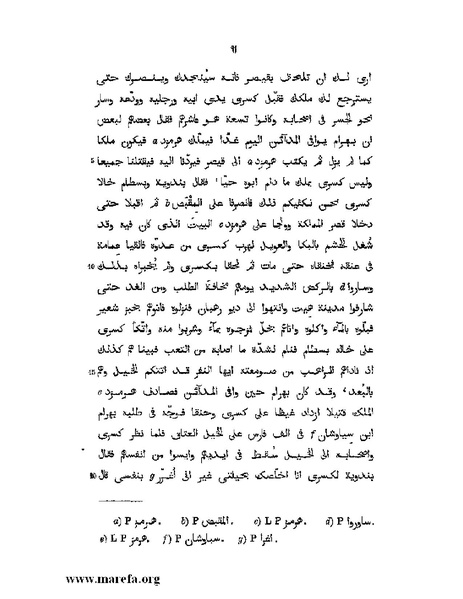 ٩١
ارى لك ان تلحق بقيصر فانه سيُنجدك وينصرك حتى
يسترجع لك ملكك فقبّل كسرى يدى ابيه ورجليه وودّعه وسار
نحو الجسر فى اصحابه وكانوا تسعة هو عاشرهم فقال بعضهم لبعض
ان بهرام يوافى المدائن اليوم او غدًا فيملّك هرمزد a فيكون ملكا
كما لم يزل ثم يكتب هرمزد a الى قيصر فيردّنا اليه فيقتلنا جميعا 5
وليس كسرى بملك ما دام ابوه حيّا ، فقال بندوية وبسطام خالا
كسرى نحن نكفيكم ذلك فانصرفا على المقْبَض b ثم اقبلا حتى
دخلا قصر المملكة وولجا على هرمزد c البيت الذى كان فيه وقد
شُغل الحَشَم بالبكا والعويل لهرب كسرى من عدوّه فالقيا عِمامة
فى عنقه فخنقاه حتى مات ثم لحقا بكسرى ولم يُخبراه بذلك 10
وساروا d بالركض الشديد يومهم مخافة الطلب ومن الغد حتى
شارفوا مدينة هِيت وانتهوا الى دير رهبان فنزلوه فاتوهم بخبز شعير
فبلّوه بالماء واكلوه واتاهم بخلّ فمزجوه بماء وشربوا منه واتّكأ كسرى
على خاله بسطام فنام لشدّة ما اصابه من التعب فبينا هم كذلك
اذ ناداهم الراهب من صومعته ايها النفر قد اتتكم الخيل وهم 15
بالبُعد ، وقد كان بهرام حين وافى المدائن فصادف هرمزد e
الملك قتيلا ازداد غيظا على كسرى وحنقا فوجّه فى طلبه بهرام
ابن سياوشان f فى الف فارس على الخيل العتاق فلما نظر كسرى
واصحابه الى الخيل سُقط فى ايديهم وايسوا من انفسهم فقال
بندوية لكسرى انا اخلّصك بحيلتى غير انى أُغرِّر g بنفسى قال 20
a) P هرمز. b) P المقيض. c) L P هرمز. d) P ساوروا.
e) L P هرمز. f) P سباوشان. g) P اغرا.
www.marefa.org